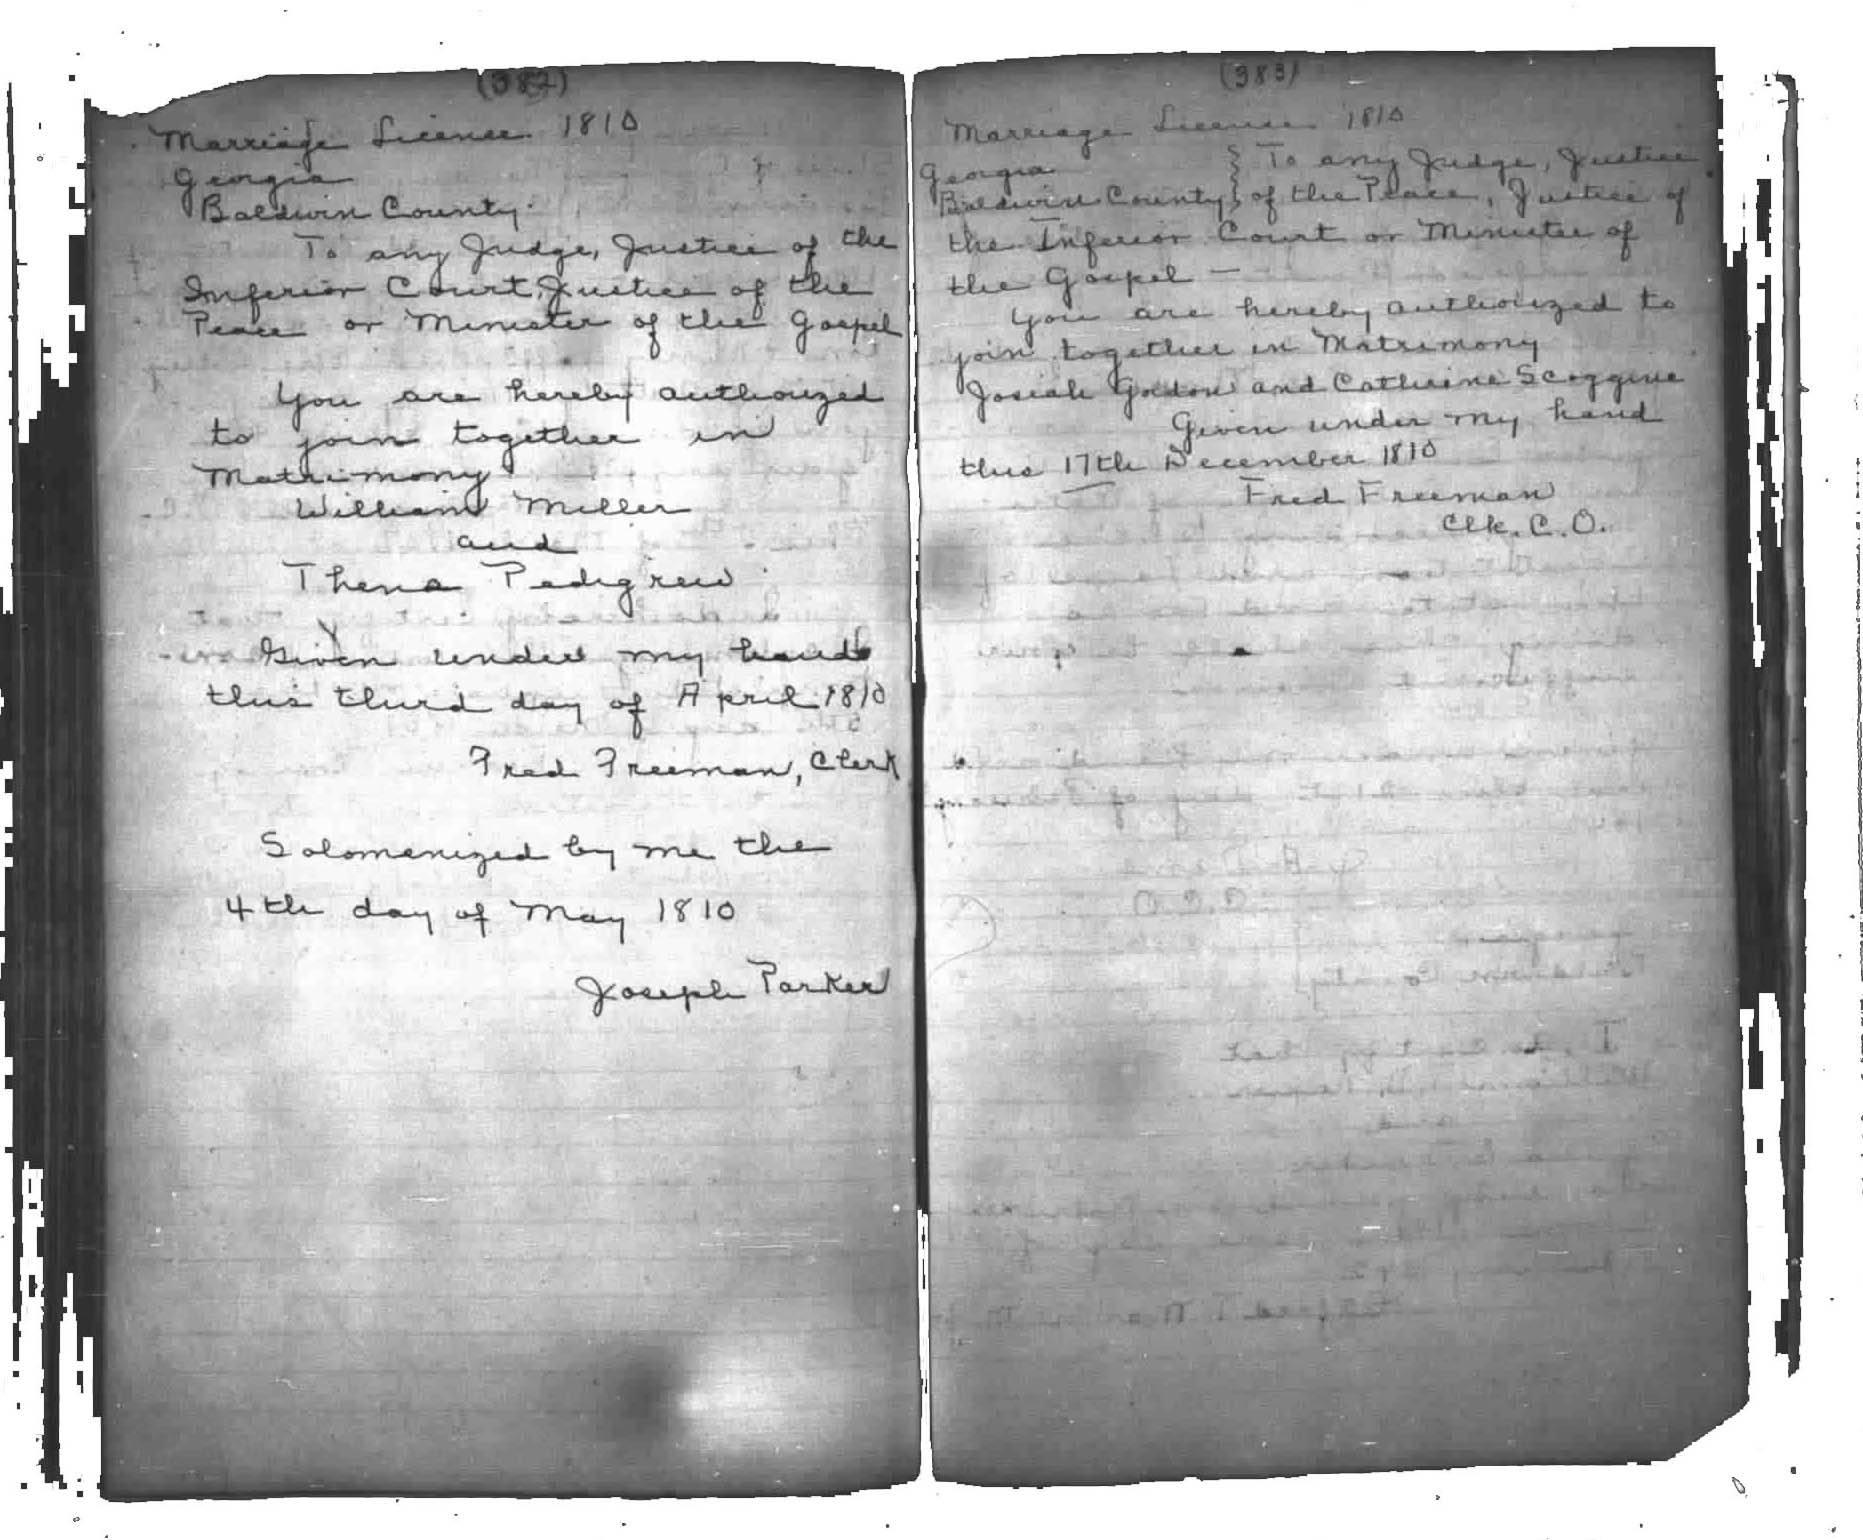 (382)
Marriage License 1810
Georgia
Baldwin County.
To any Judge, Justice of the
Inferior Court, Justice of the
Peace or Minister of the Gospel
You are hereby authorized
to join together in
Matrimony
William Miller
and
Thena Pedigrew
Given under my hand
this third day of April 1810
Fred Freeman, Clerk
Solomenized by me the
4th day of May 1810
Joseph Parker
(383)
Marriage License 1810
Georgia } To any Judge, Justice
Baldwin County } of the Peace, Justice of
the Inferior Court or Minister of
the Gospel —
You are hereby authorized to
join together in Matrimony
Josiah Gordon and Catherine Scoggine
Given under my hand
this 17th December 1810
Fred Freeman
Clk. C. O.